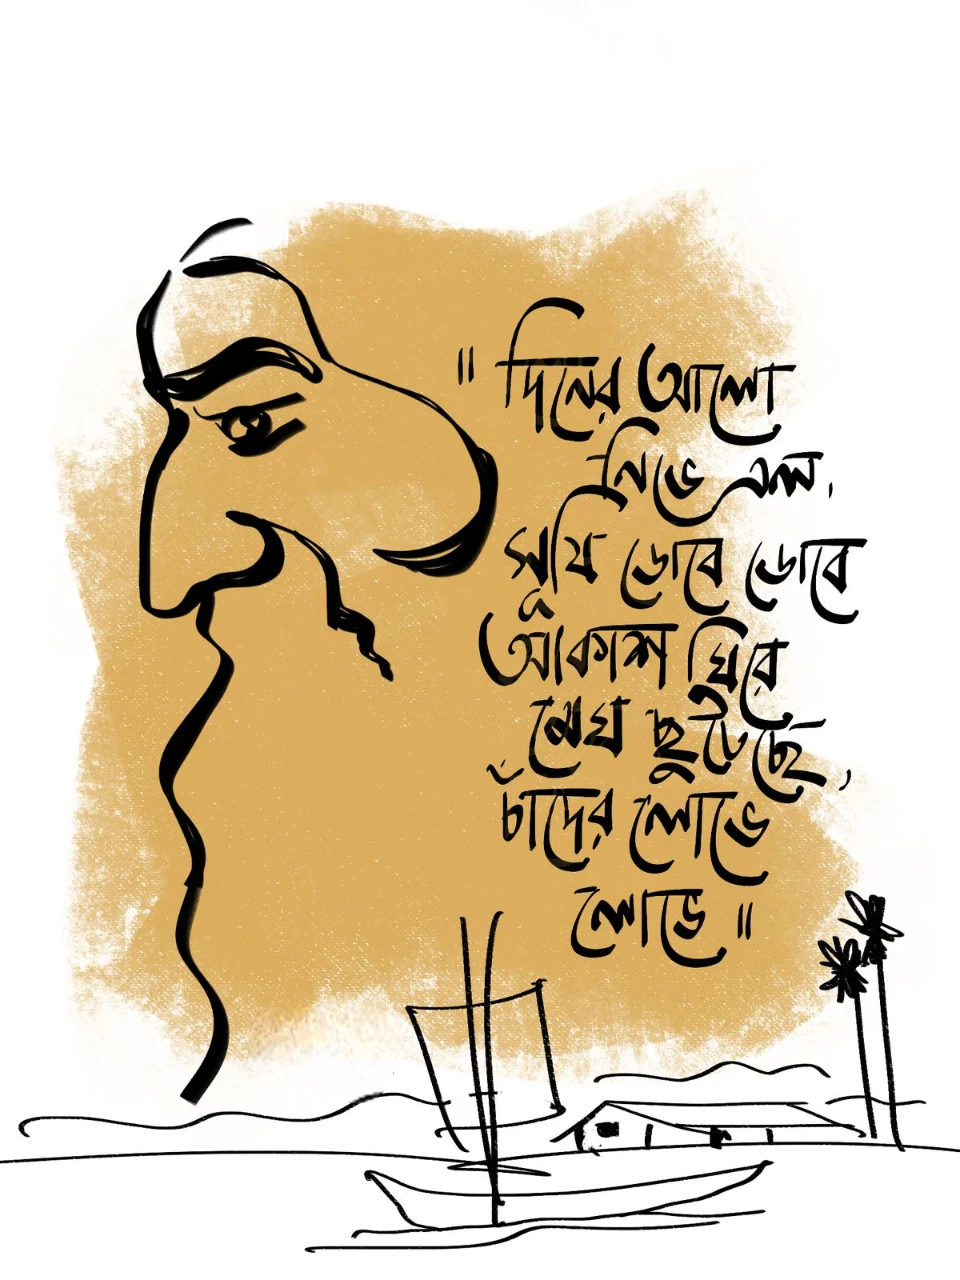 "দিনের আলো
নিভে এল,
সূযি ডোবে ডোবে
আকাশ ঘিরে
মেঘ ছুটেছে,
চাঁদের লোভে
লোভে"